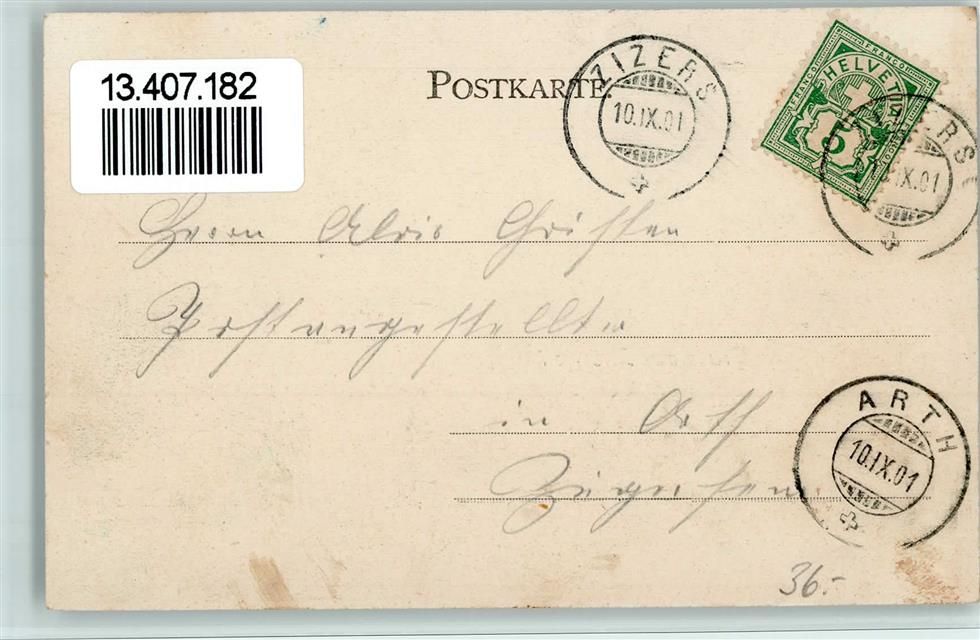 13.407.182
POSTKARTE
ZIZERS
10.IX.01
FRANCO FRANCO FRANCO
HELVETIA
5
ZIZERS
IX.01
Herrn Alois Christen
Postangestellter
in Arth
ARTH
10.IX.01
36.-